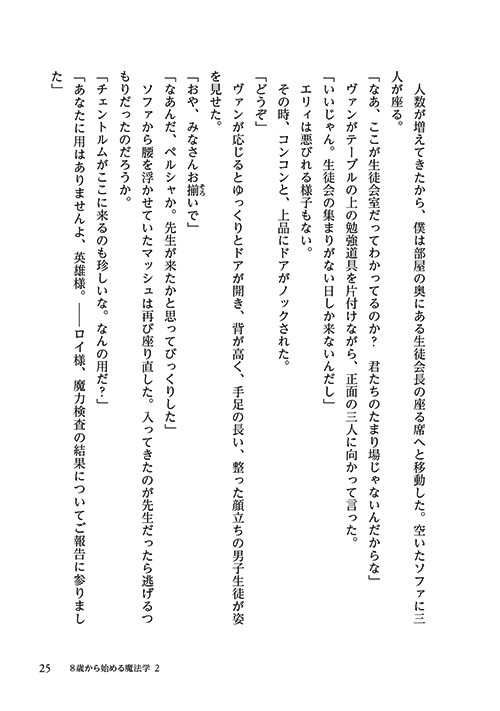 人数が増えてきたから、僕は部屋の奥にある生徒会長の座る席へと移動した。空いたソファに三
人が座る。
「なあ、ここが生徒会室だってわかってるのか？　君たちのたまり場じゃないんだからな」
　ヴァンがテーブルの上の勉強道具を片付けながら、正面の三人に向かって言った。
「いいじゃん。生徒会の集まりがない日しか来ないんだし」
　エリィは悪びれる様子もない。
　その時、コンコンと、上品にドアがノックされた。
「どうぞ」
　ヴァンが応じるとゆっくりとドアが開き、背が高く、手足の長い、整った顔立ちの男子生徒が姿
を見せた。
「おや、みなさんお揃いで」
「なあんだ、ペルシャか。先生が来たかと思ってびっくりした」
　ソファから腰を浮かせていたマッシュは再び座り直した。入ってきたのが先生だったら逃げるつ
もりだったのだろうか。
「チェントルムがここに来るのも珍しいな。なんの用だ？」
「あなたに用はありませんよ、英雄様。――ロイ様、魔力検査の結果についてご報告に参りまし
た」
25　8歳から始める魔法学 2